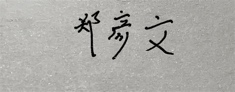 郑彦文